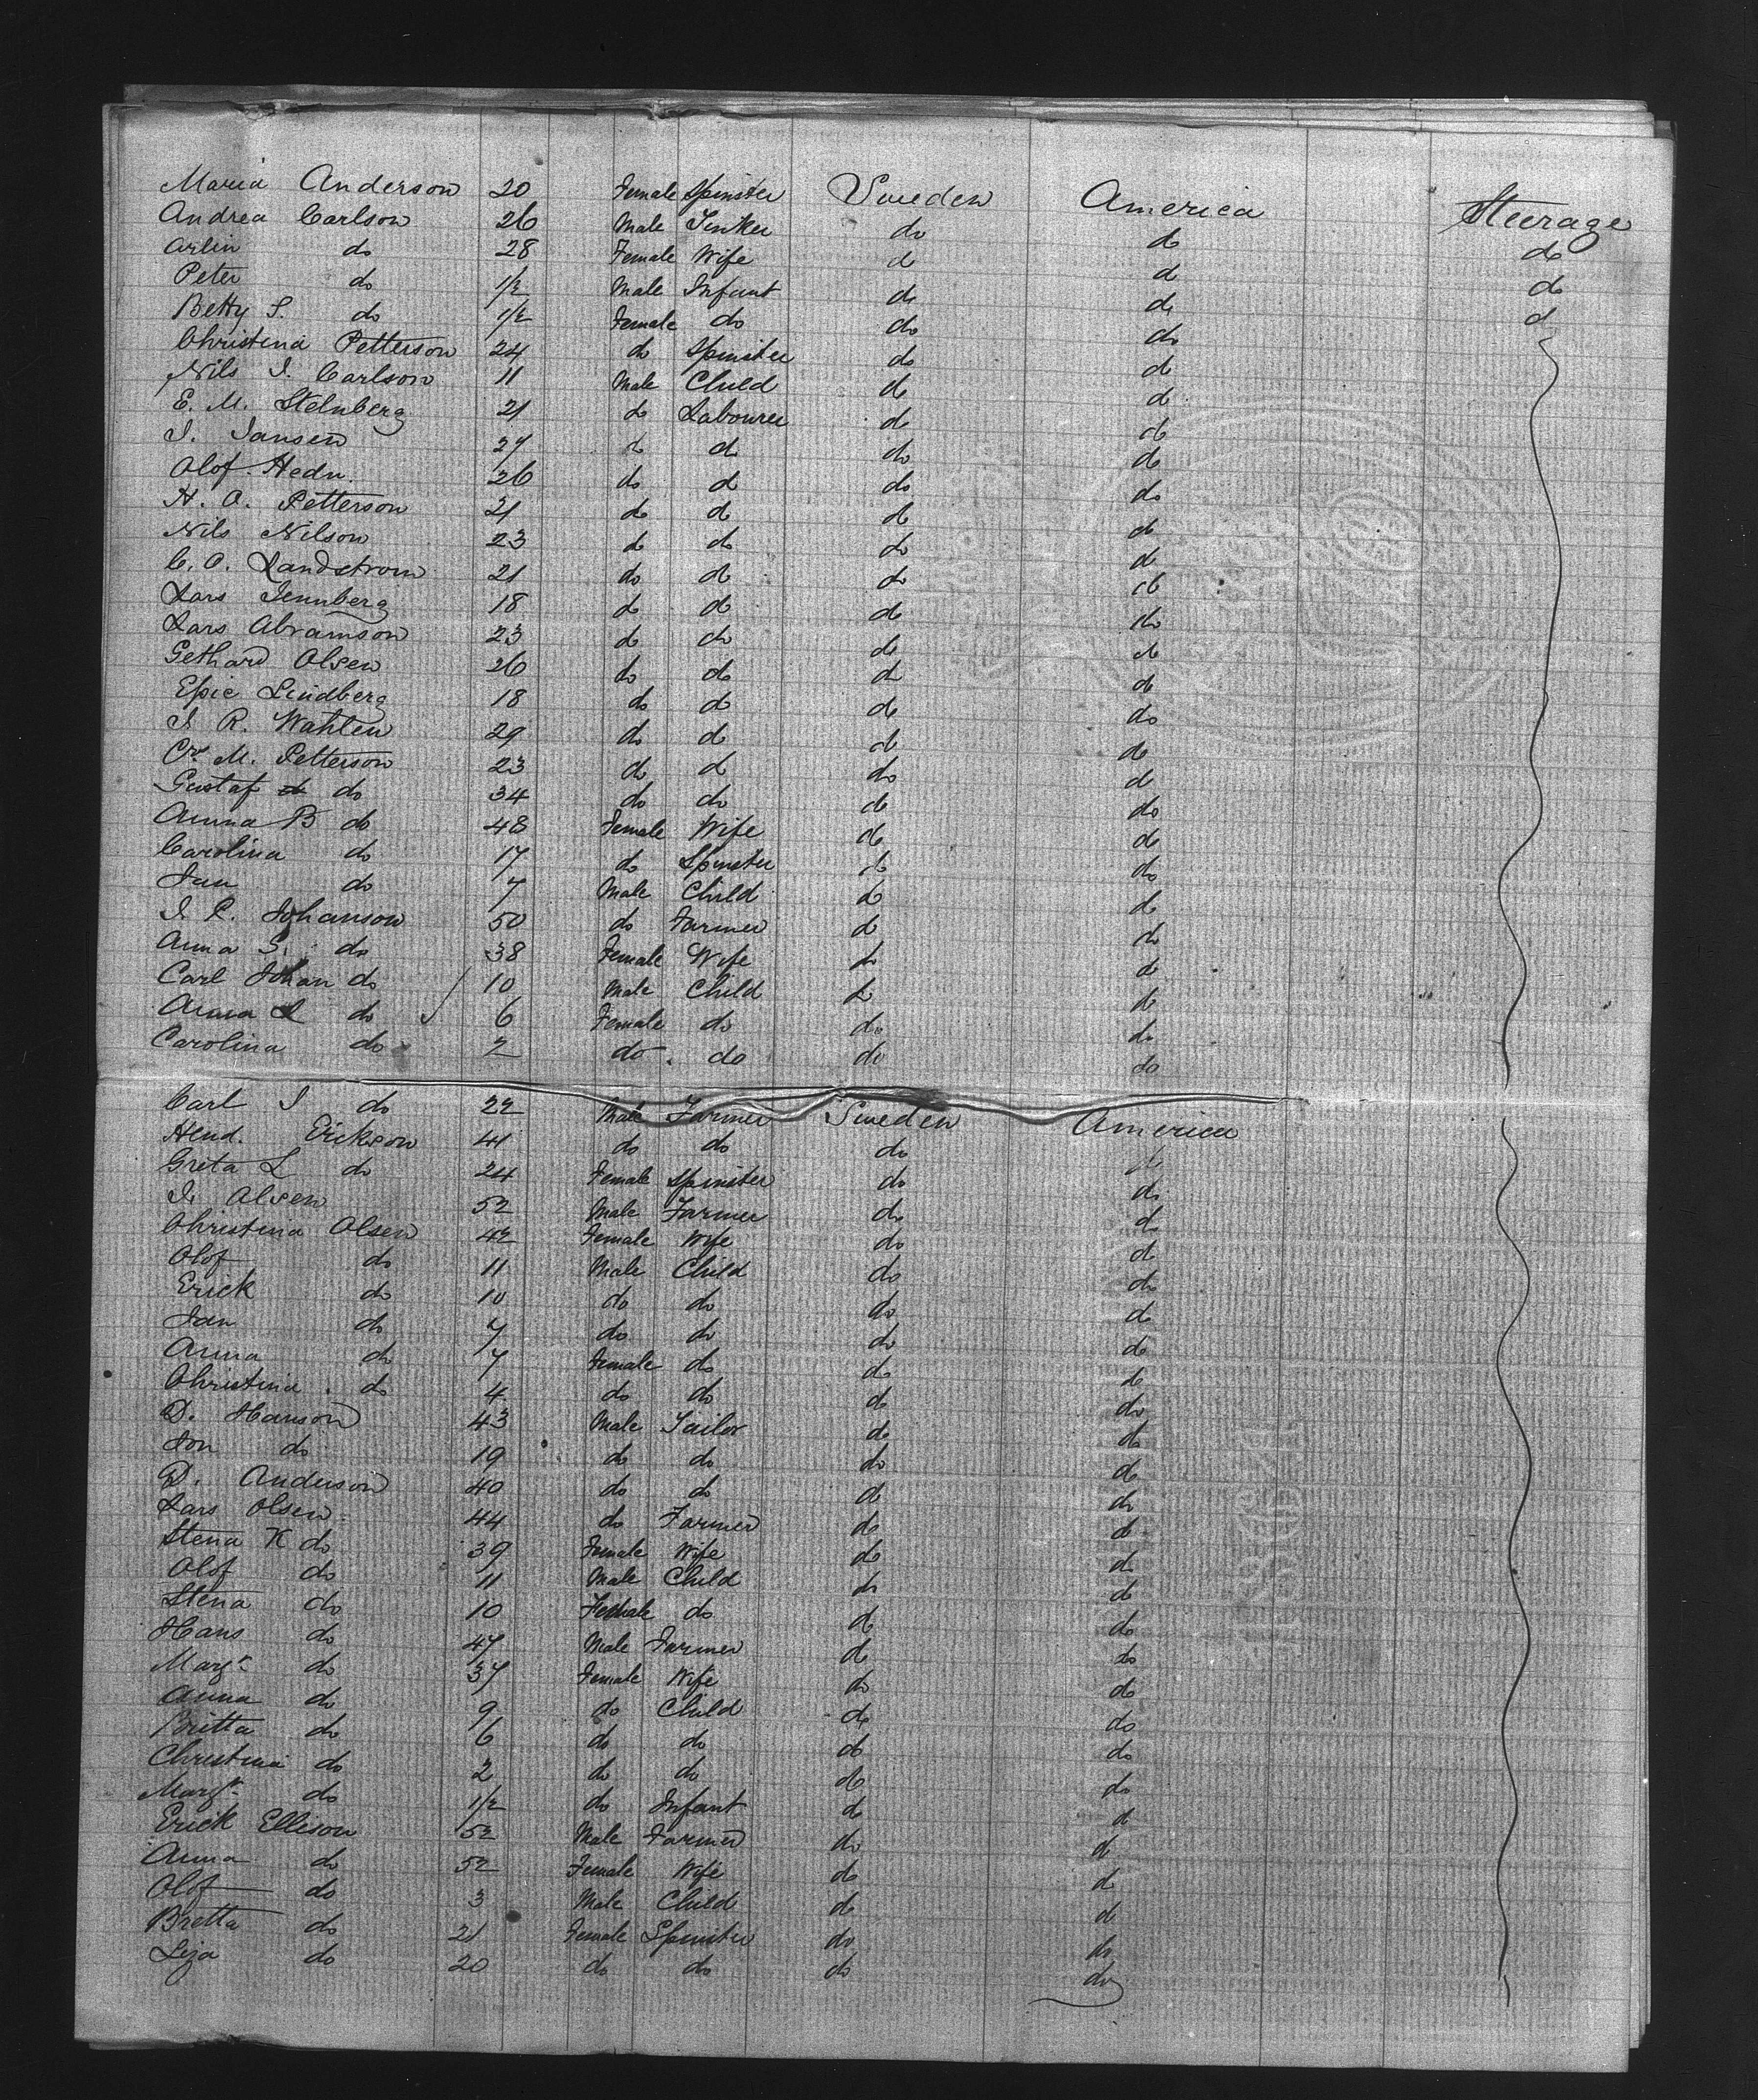 Maria Anderson 20 Female Spinster Sweden America Steerage
Andrea Carlson 26 Male Tinker do do do
Arlin do 28 Female Wife do do do
Peter do 1/2 Male Infant do do do
Betty S. do 1/2 Female do do do
Christina Petterson 24 do Spinster do do
Nils I. Carlson 11 Male Child do do
E. M. Stelnberg 21 do Labourer do do
I. Jansen 27 do do do do
Olof Hedn 26 do do do do
H. O. Petterson 21 do do do do
Nils Nilson 23 do do do do
C. O. Landstrom 21 do do do do
Lars Tennberg 18 do do do do
Lars Abramson 23 do do do do
Gethard Olsen 26 do do do do
Lindberg 18 do do do do
I R. Wahlen 29 do do do do
M. Petterson 23 do do do do
Gustaf do 34 do do do do
Anna B do 48 Female Wife do do
Carolina do 17 do Spinster do do
Jan do 7 Male Child do do
I P. Johanson 50 do Farmer do do
Anna S. do 38 Female Wife do do
Carl Johan do 10 Male Child do do
Anna L do 6 Female do do do
Carolina do 2 do do do do
Carl I do 22 Male Farmer Sweden America
Hend. Erickson 41 do do do do
Greta L do 24 Female Spinster do do
I. Olsen 52 Male Farmer do do
Christina Olsen 42 Female Wife do do
Olof do 11 Male Child do do
Erick do 10 do do do do
Jan do 7 do do do do
Anna do 7 Female do do do
Christina do 4 do do do do
D. Hanson 43 Male Tailor do do
Jon do 19 do do do do
D. Anderson 40 do do do do
Lars Olsen 44 do Farmer do do
Stena K do 39 Female Wife do do
Olof do 11 Male Child do do
Stena do 10 Female do do do
Hans do 47 Male Farmer do do
Margt. do 37 Female Wife do do
Anna do 9 do Child do do
Britta do 6 do do do do
Christina do 2 do do do do
Margt. do 1/2 do Infant do do
Erick Ellison 52 Male Farmer do do
Anna do 52 Female Wife do do
Olof do 3 Male Child do do
Bretta do 21 Female Spinster do do
Liza do 20 do do do do